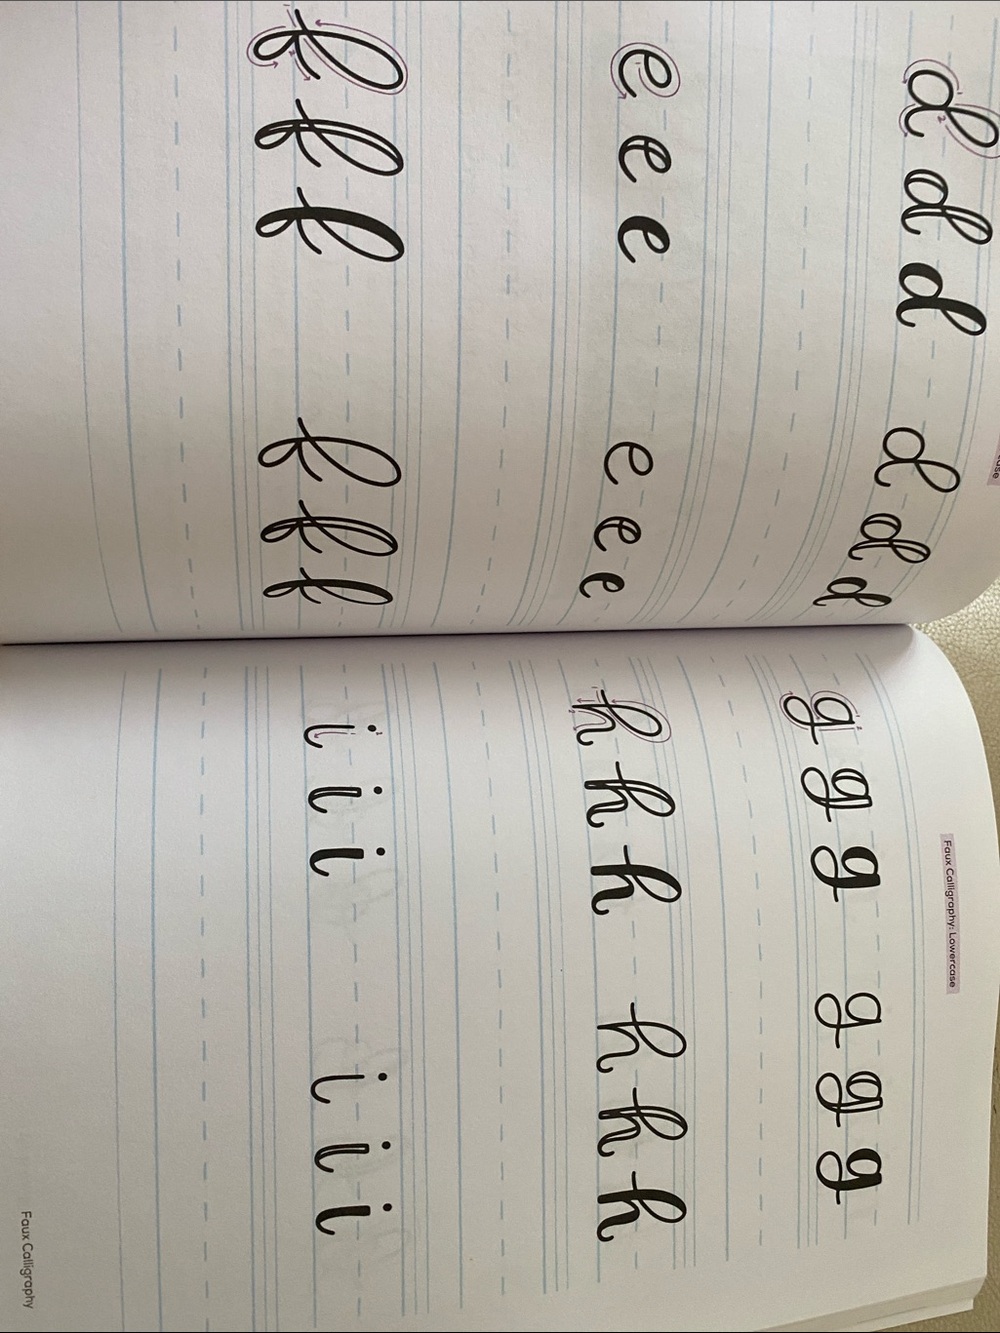 case
d d d d d d
e e e e e e
f f f f f f
Faux Calligraphy: Lowercase
g g g g g g
h h h h h h
i i i i i i
Faux Calligraphy